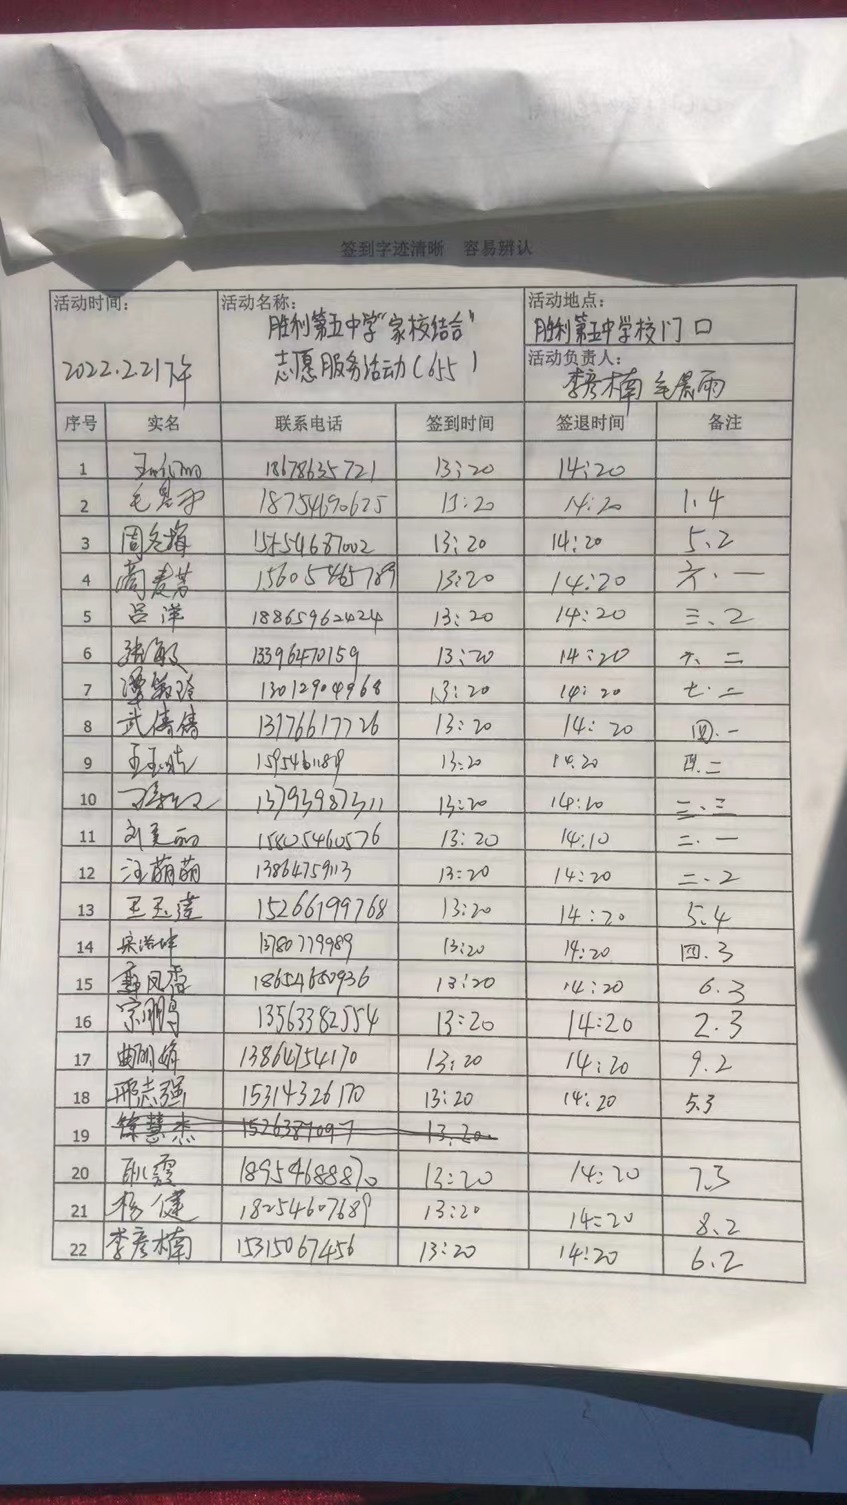 签到字迹清晰 容易辨认
活动时间:
2022.2.21下午
活动名称:
胜利第五中学"家校结合"
志愿服务活动(655)
活动地点:
胜利第五中学校门口
活动负责人:
李彦楠 毛晨雨
序号 实名 联系电话 签到时间 签退时间 备注
1 18678635721 13:20 14:20
2 18754690625 13:20 14:20 1.4
3 15254687002 13:20 14:20 5.2
4 15605465789 13:20 14:20 六.一
5 吕洋 18865962424 13:20 14:20 三.2
6 张敏 13396470159 13:20 14:20 六.二
7 13012904968 13:20 14:20 七.二
8 武倩倩 13176617726 13:20 14:20 四.一
9 13:20 14:20 四.二
10 13793987311 13:20 14:20 二.三
11 15805460576 13:20 14:10 二.一
12 汪萌萌 1386475913 13:20 14:20 二.2
13 15266199768 13:20 14:20 5.4
14 13780779989 13:20 14:20 四.3
15 18654680936 13:20 14:20 6.3
16 宗鹏 13563382554 13:20 14:20 2.3
17 曲明娟 13864754170 13:20 14:20 9.2
18 邢志强 15314326170 13:20 14:20 5.3
19 徐慧杰 13:20
20 耿霞 18954688870 13:20 14:20 7.3
21 杨健 18254607689 13:20 14:20 8.2
22 李彦楠 15315067456 13:20 14:20 6.2